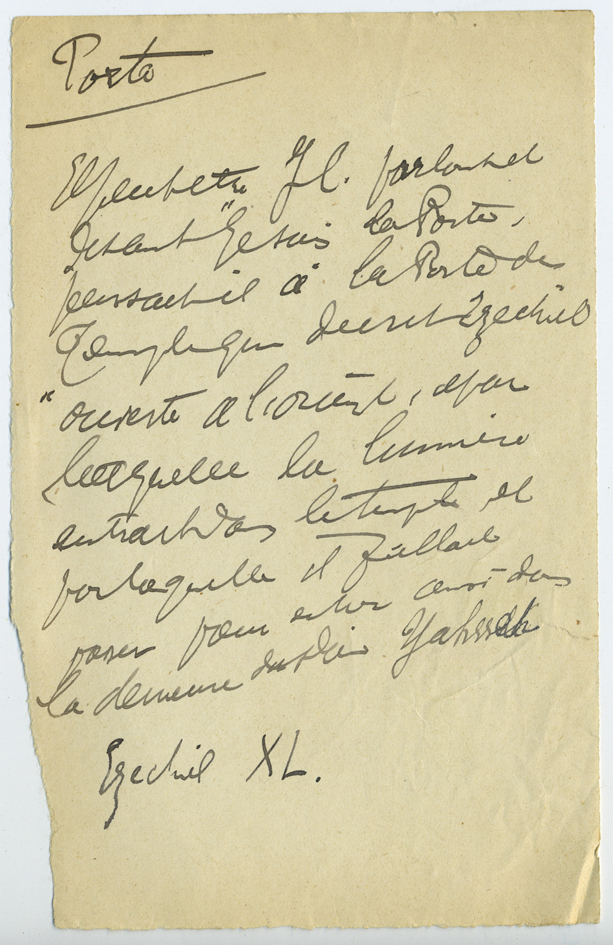 Porte
Et peut être J.C. parlant et
disant "Je suis la Porte,
pensait il à la Porte du
Temple que décrit Ezechiel
" ouverte à l'orient, et par
laquelle la lumière
entrait dans le temple et
par laquelle il fallait
passer pour entrer ainsi dans
la demeure Yahveh
Ezechiel XL.